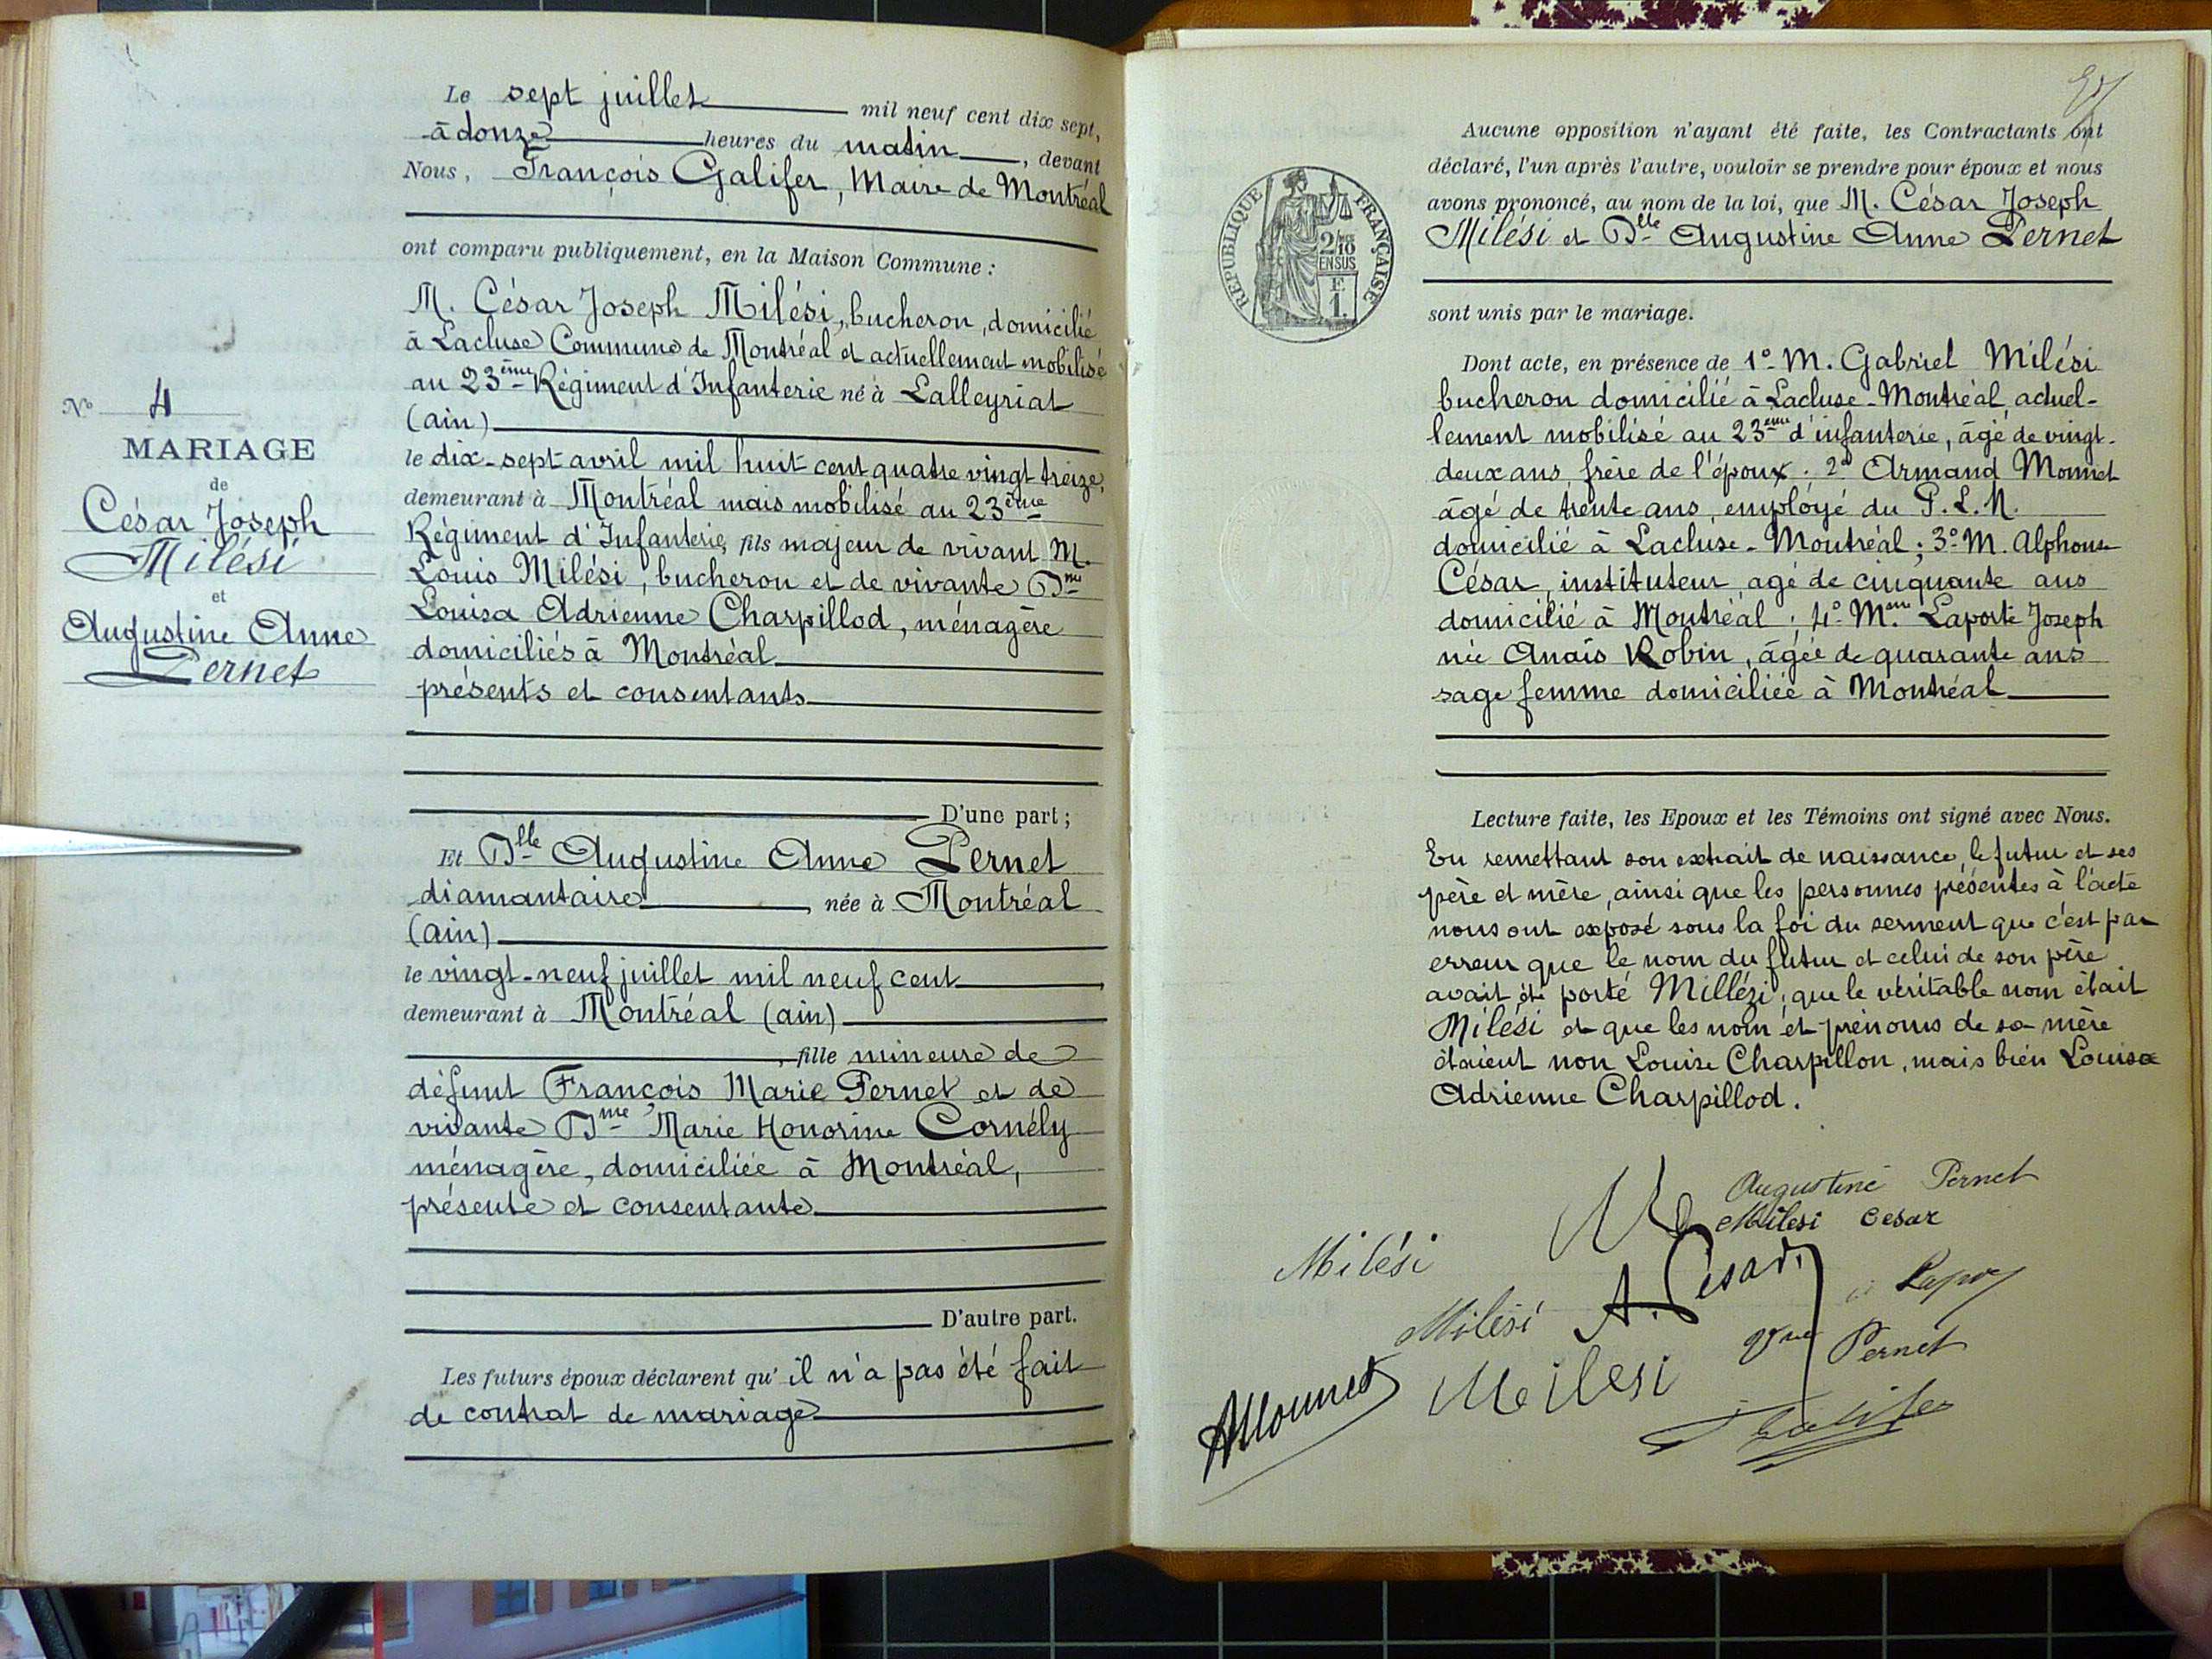 Le sept juillet mil neuf cent dix sept,
à donze heures du matin, devant
Nous, François Galifer, Maire de Montréal
ont comparu publiquement, en la Maison Commune :
M. César Joseph Milési, bucheron, domicilié
à Lacluse Commune de Montréal et actuellement mobilisé
au 23ème Régiment d'Infanterie né à Lalleyriat
(ain)
le dix-sept avril mil huit cent quatre vingt treize,
demeurant à Montréal mais mobilisé au 23ème
Régiment d'Infanterie, fils majeur de vivant M.
Louis Milési, bucheron et de vivante Dme
Louisa Adrienne Charpillod, ménagère
domiciliés à Montréal
présents et consentants
D'une part ;
Et Dlle Augustine Anne Pernet
diamantaire, née à Montréal
(ain)
le vingt-neuf juillet mil neuf cent,
demeurant à Montréal (ain)
, fille mineure de
défunt François Marie Pernet et de
vivante Dme Marie Honorine Cornély
ménagère, domiciliée à Montréal,
présente et consentante
D'autre part.
Les futurs époux déclarent qu'il n'a pas été fait
de contrat de mariage
No 4
MARIAGE
de
César Joseph
Milési
et
Augustine Anne
Pernet
Aucune opposition n'ayant été faite, les Contractants ont
déclaré, l'un après l'autre, vouloir se prendre pour époux et nous
avons prononcé, au nom de la loi, que M. César Joseph
Milési et Dlle Augustine Anne Pernet
sont unis par le mariage.
RÉPUBLIQUE FRANÇAISE
2/10
EN SUS
F.
1.
Dont acte, en présence de 1o M. Gabriel Milési
bucheron domicilié à Lacluse-Montréal, actuel-
lement mobilisé au 23ème d'infanterie, âgé de vingt-
deux ans, frère de l'époux ; 2o Armand Monnet
âgé de trente ans, employé du P. L. M.
domicilié à Lacluse-Montréal ; 3o M. Alphonse
César, instituteur, agé de cinquante ans
domicilié à Montréal ; 4o Mme Laporte Joseph
née Anaïs Robin, âgée de quarante ans
sage femme domiciliée à Montréal
Lecture faite, les Epoux et les Témoins ont signé avec Nous.
En remettant son extrait de naissance, le futur et ses
père et mère, ainsi que les personnes présentes à l'acte
nous ont exposé sous la foi du serment que c'est par
erreur que le nom du futur et celui de son père
avait été porté Millézi ; que le véritable nom était
Milési et que les nom et prénoms de sa mère
étaient non Louise Charpillon, mais bien Louisa
Adrienne Charpillod.
Augustine Pernet
Milesi Cesar
Milési
A. Cesar
Milési
Vve Pernet
Milesi
AMonnet
Galifer